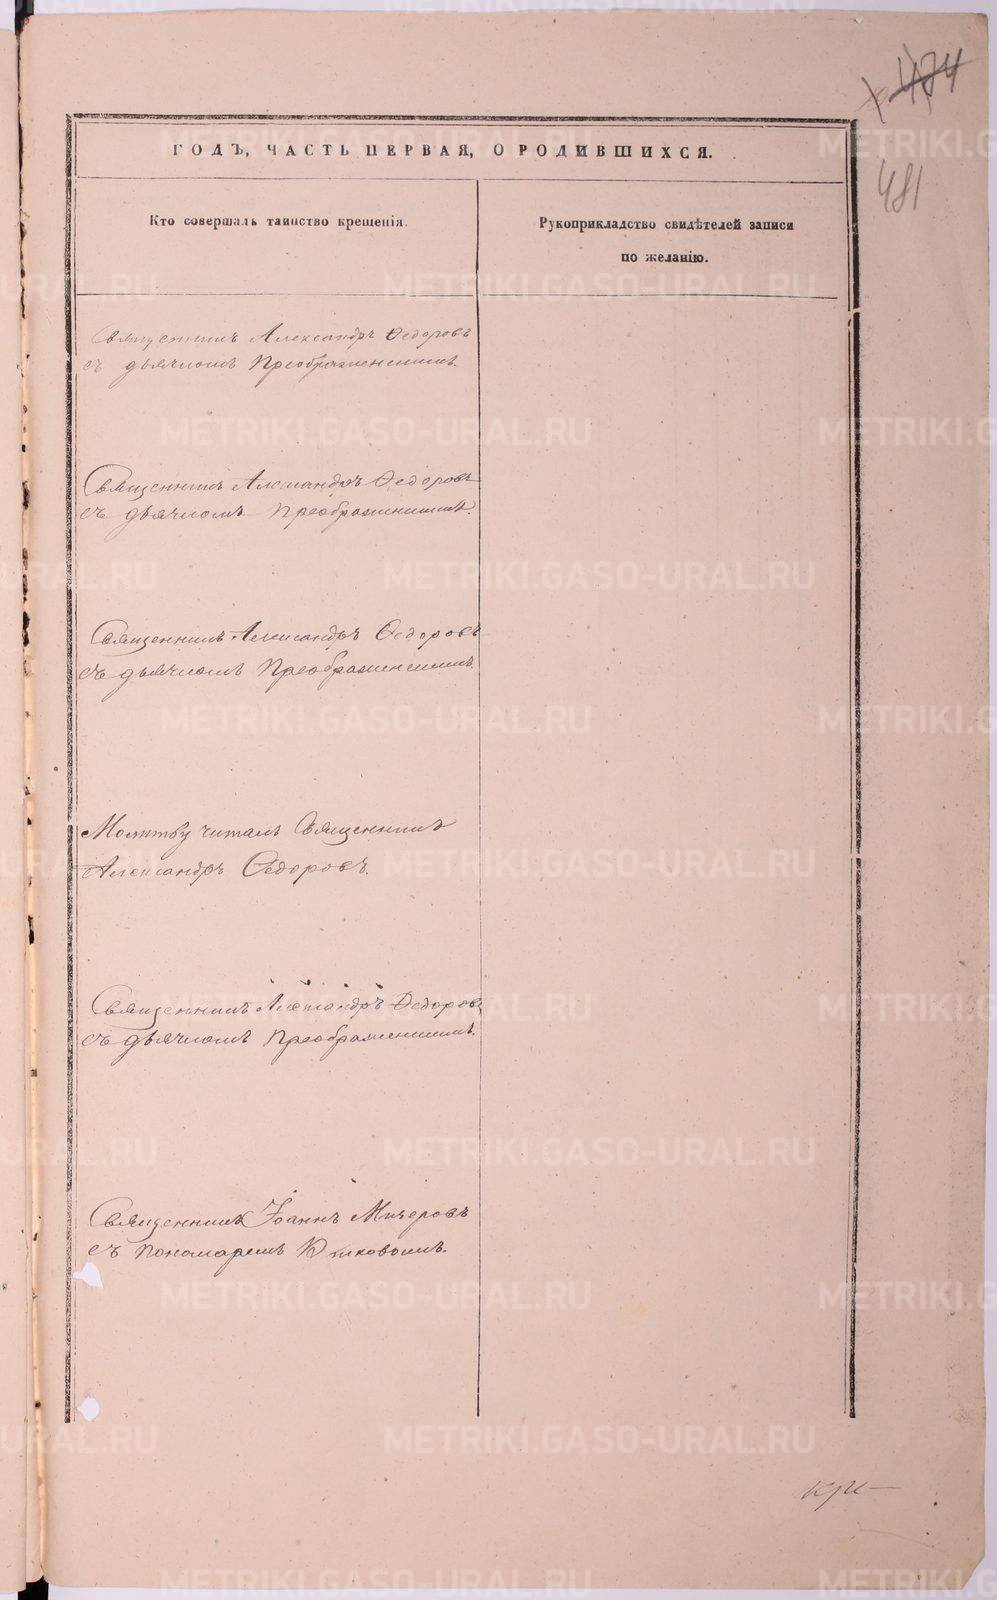 474
481
ГОДЪ, ЧАСТЬ ПЕРВАЯ, О РОДИВШИХСЯ.
Кто совершалъ таинство крещенія.
Рукоприкладство свидѣтелей записи
по желанію.
Священникъ Александръ Ѳедоровъ
съ дьячкомъ Преображенскимъ.
Священникъ Александръ Ѳедоровъ
съ дьячкомъ Преображенскимъ.
Священникъ Александръ Ѳедоровъ
съ дьячкомъ Преображенскимъ.
Молитву читалъ Священникъ
Александръ Ѳедоровъ.
Священникъ Александръ Ѳедоровъ
съ дьячкомъ Преображенскимъ.
Священникъ Іоаннъ Мичеровъ
съ пономаремъ
METRIKI.GASO-URAL.RU